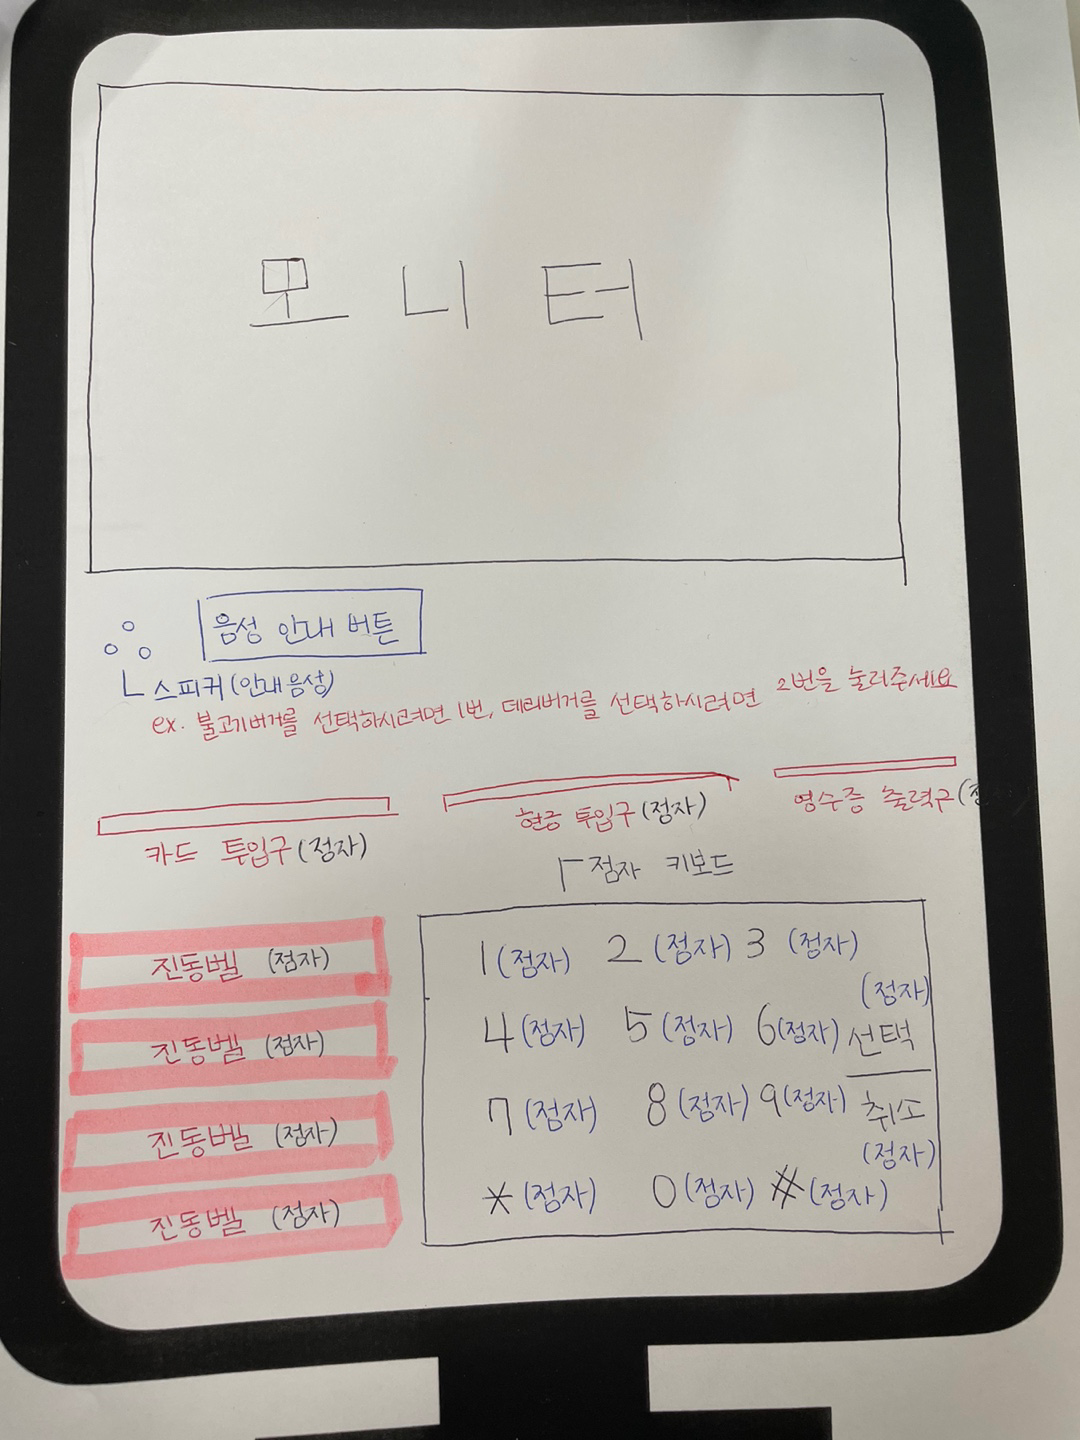 모니터
음성 안내 버튼
스피커(안내음성)
ex. 불고기버거를 선택하시려면 1번, 데리버거를 선택하시려면 2번을 눌러주세요
카드 투입구(점자)
현금 투입구(점자)
영수증 출력구(점
점자 키보드
진동벨 (점자)
진동벨 (점자)
진동벨 (점자)
진동벨 (점자)
1(점자) 2(점자) 3(점자)
(점자)
4(점자) 5(점자) 6(점자) 선택
7(점자) 8(점자) 9(점자) 취소
(점자)
*(점자) 0(점자) #(점자)